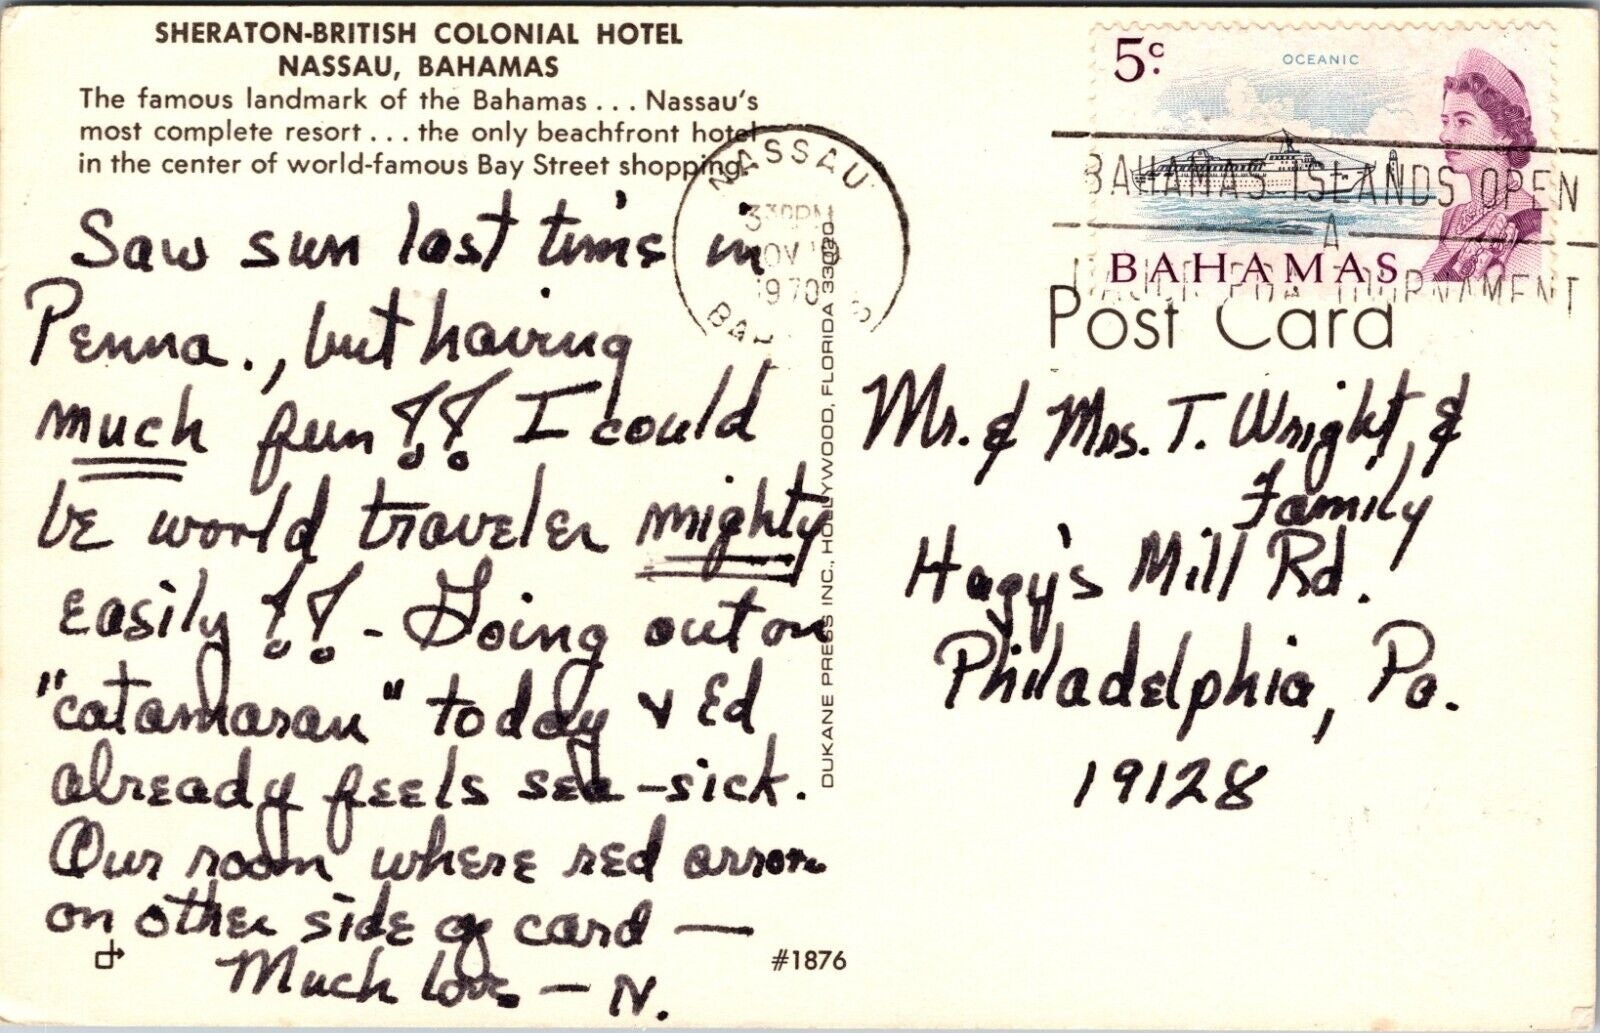 SHERATON-BRITISH COLONIAL HOTEL
NASSAU, BAHAMAS
The famous landmark of the Bahamas . . . Nassau's
most complete resort . . . the only beachfront hotel
in the center of world-famous Bay Street shopping.
Saw sun last time in
Penna., but having
much fun!! I could
be world traveler mighty
easily!! - Going out on
"catamaran" today & Ed
already feels sea-sick.
Our room where red arrow
on other side of card —
Much love — N.
#1876
DUKANE PRESS INC., HOLLYWOOD, FLORIDA 33020
NASSAU
330PM
NOV
1970
5c.
OCEANIC
BAHAMAS
BAHAMAS ISLANDS OPEN
A
TOURNAMENT
Post Card
Mr. & Mrs. T. Wright, &
Family
Hagy's Mill Rd.
Philadelphia, Pa.
19128